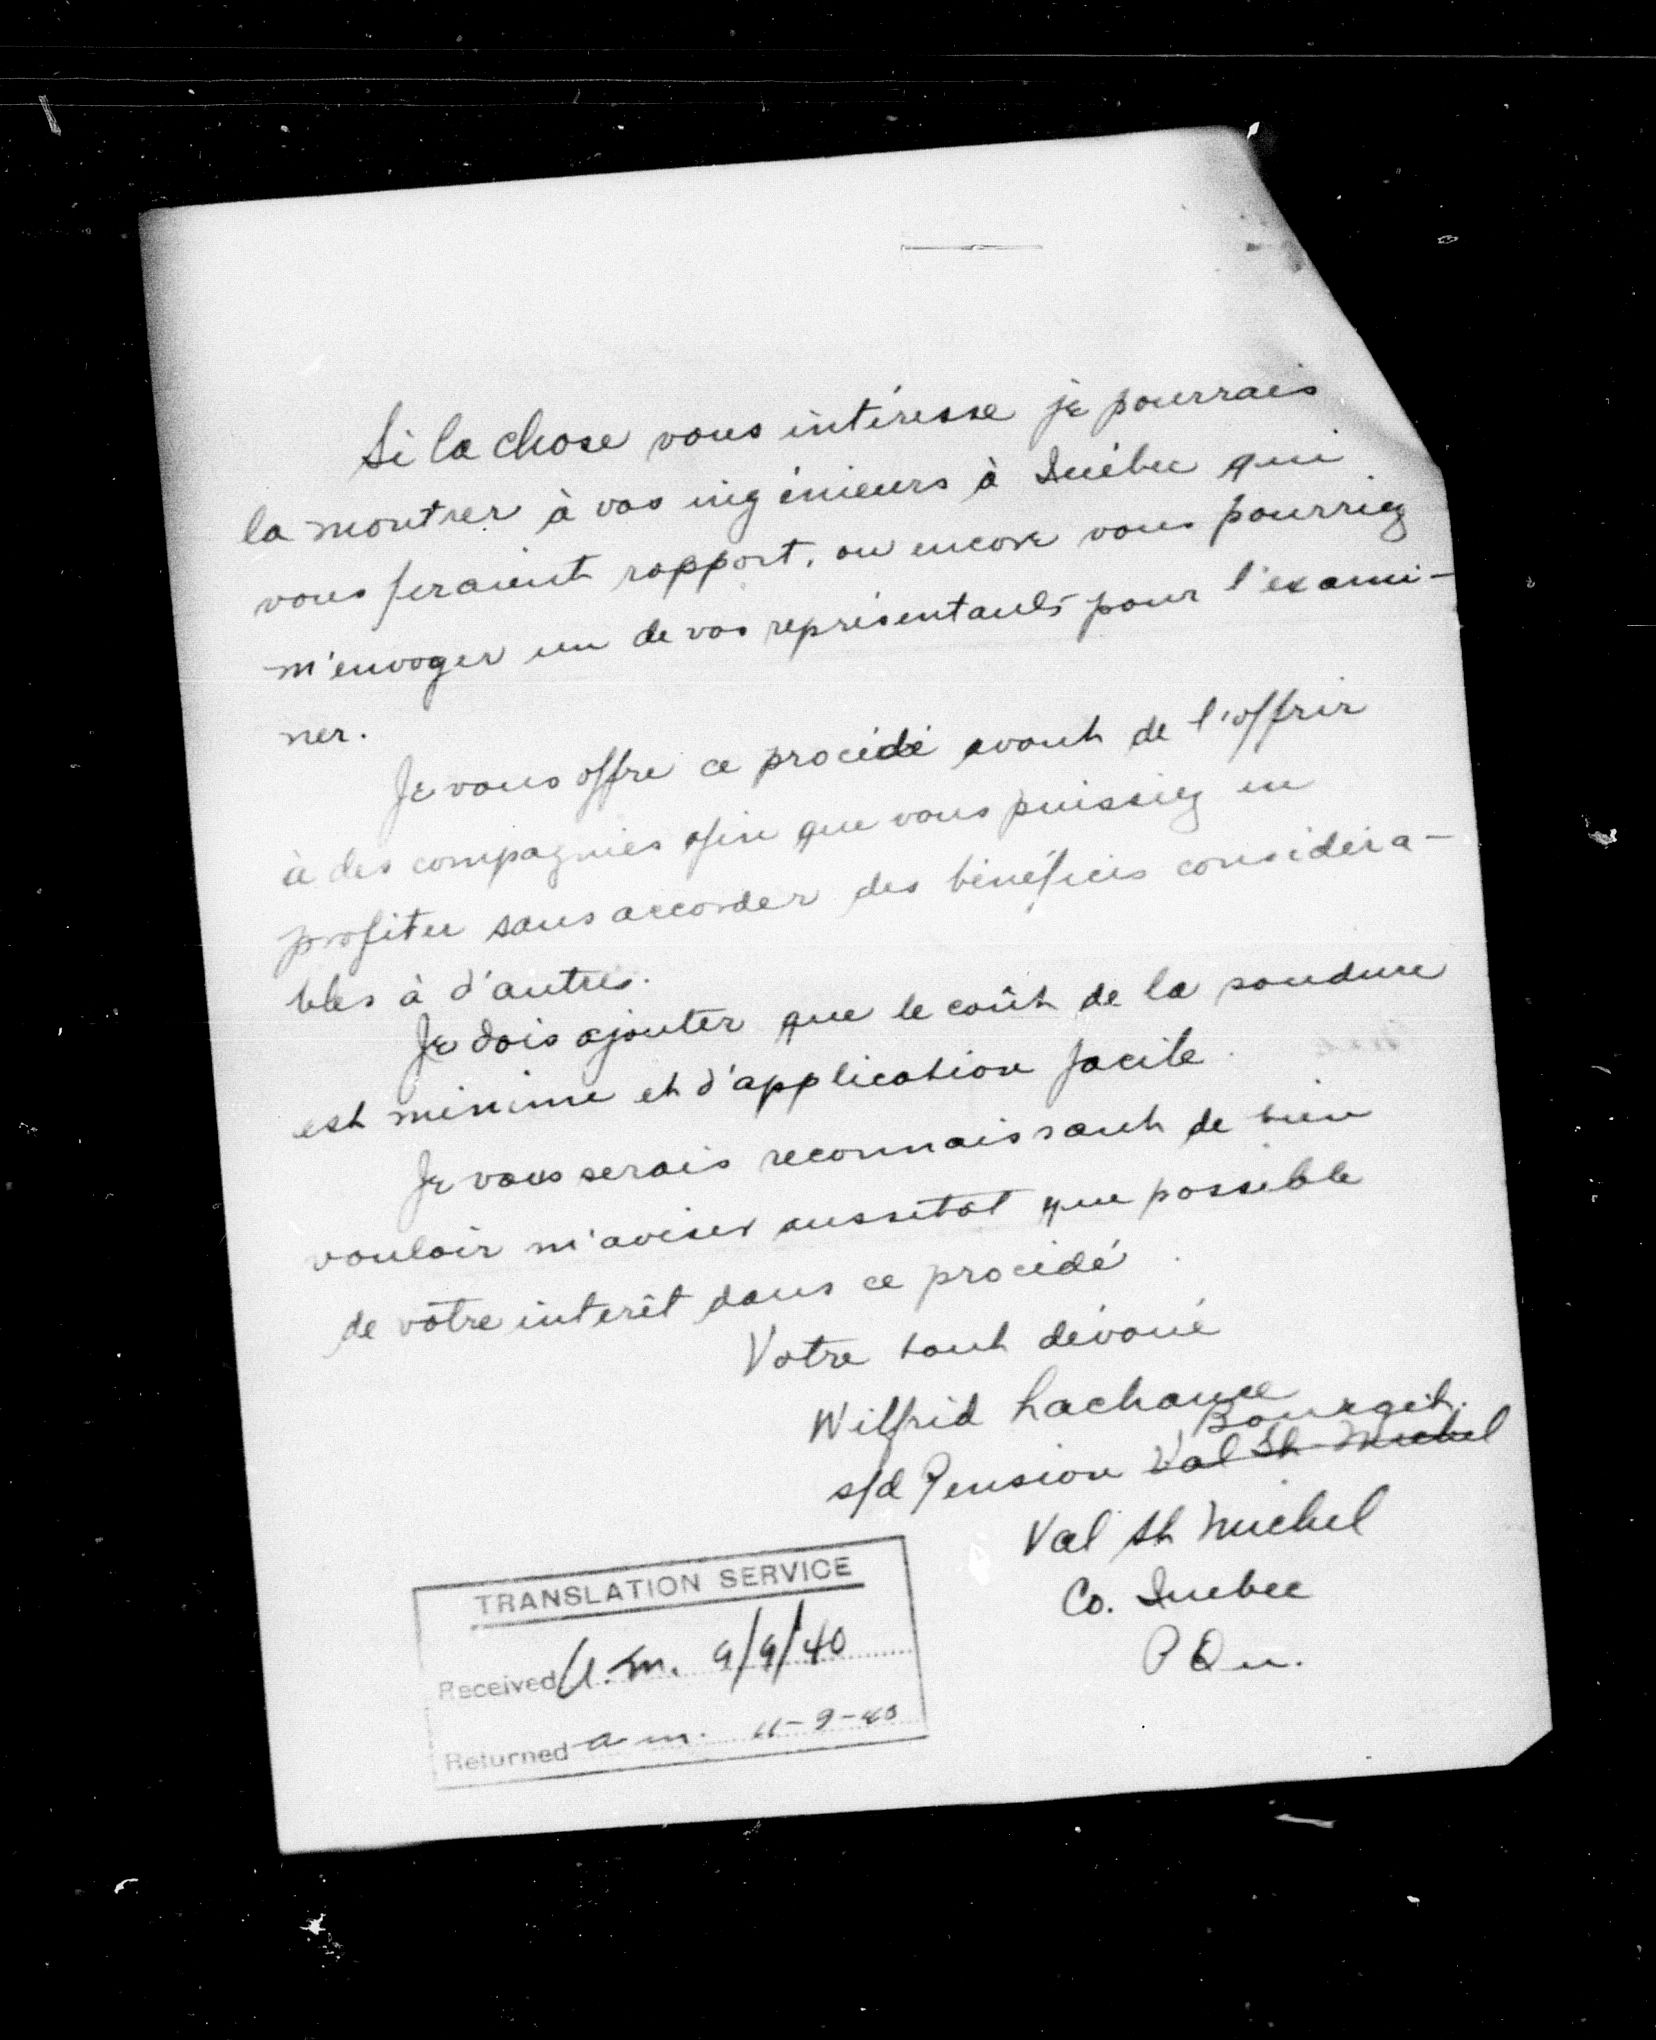 Si la chose vous intéresse je pourrais
la montrer à vos ingénieurs à Québec qui
vous feraient rapport, ou encore vous pourriez
m'envoyer un de vos représentants pour l'exami-
ner.
Je vous offre ce procédé avant de l'offrir
à des compagnies afin que vous puissiez en
profiter sans accorder des bénéfices considéra-
bles à d'autres.
Je dois ajouter que le coût de la soudure
est minime et d'application facile.
Je vous serais reconnaissant de bien
vouloir m'aviser aussitot que possible
de vôtre interêt dans ce procédé.
Votre tout dévoué
Wilfrid Lachance
Bourget.
s/d Pension Val St Michel
Val St Michel
Co. Quebec
P Qu.
TRANSLATION SERVICE
Received a.m. 9/9/40
Returned a m. 11-9-40